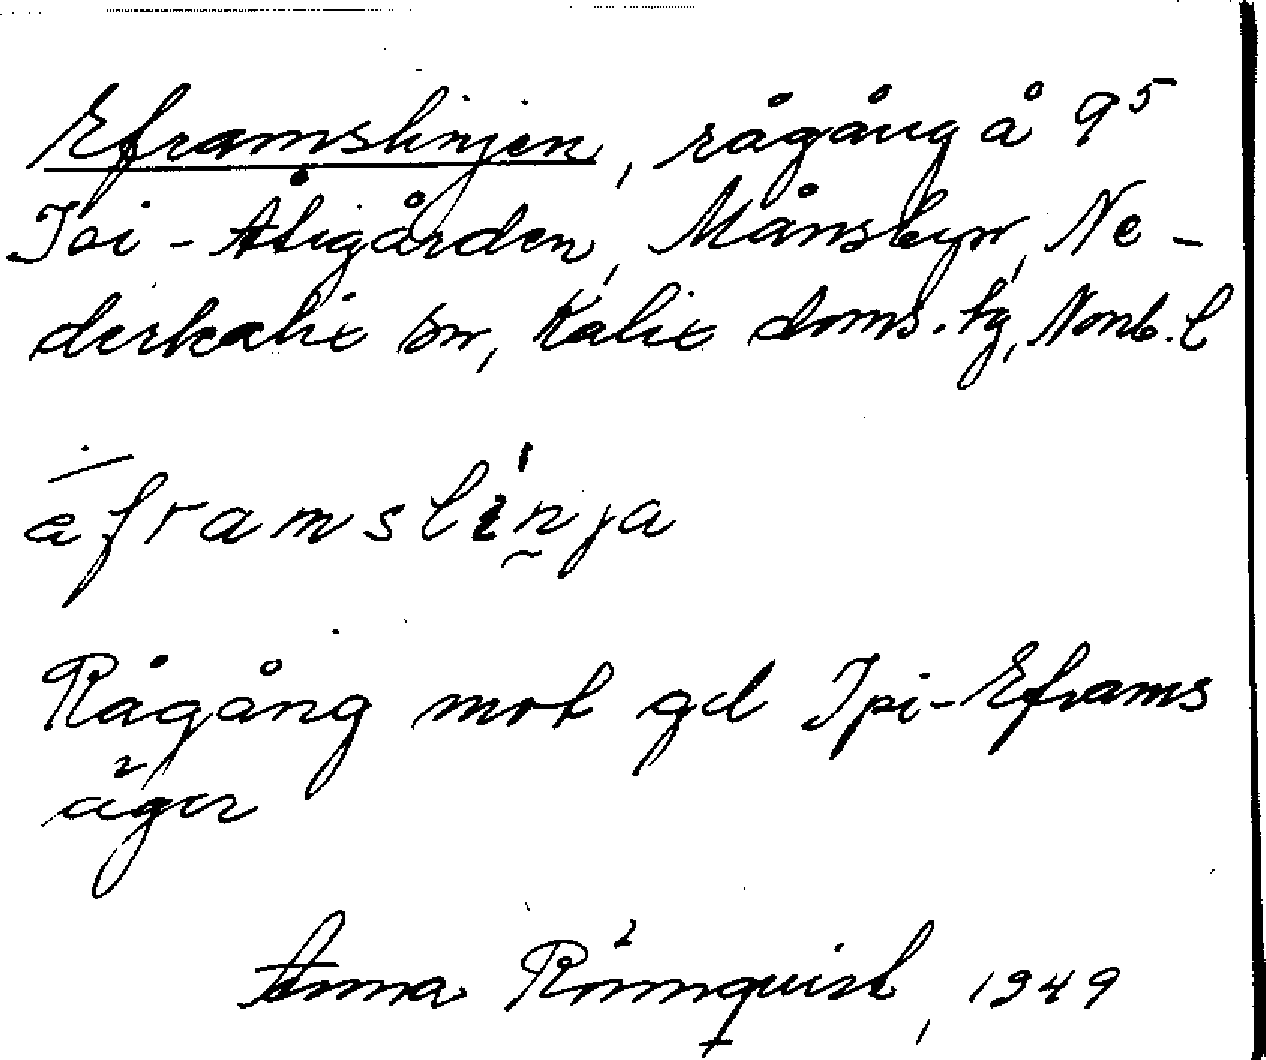 Eframslinjen, rågång å 9⁵
Ipi-Åtigården, Månsbyn, Ne-
derkalix sn, Kalix doms. tg, Norrb. l
eframslinja
Rågång mot gd Ipi-Eframs
äger
Anna Rönnquist, 1949